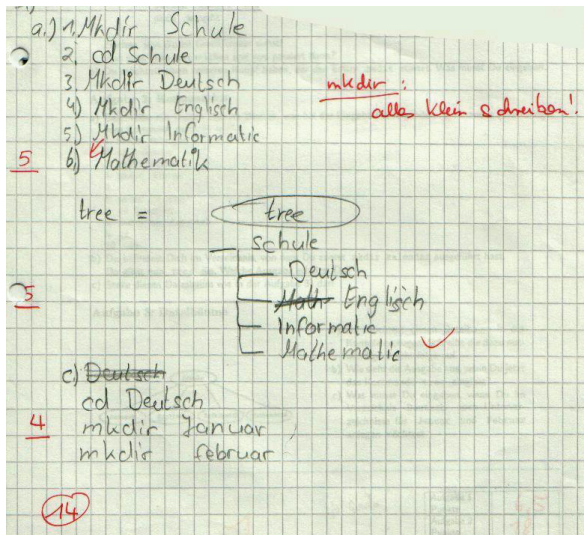 a.) 1. Mkdir Schule
2. cd Schule
3. Mkdir Deutsch
4) Mkdir Englisch
5) Mkdir Informatic
5 6) Mathematik
mkdir :
alles klein schreiben!
tree = tree
Schule
Deutsch
5 Math Englisch
Informatic
Mathematic
c.) Deutsch
cd Deutsch
4 mkdir Januar
mkdir februar
14